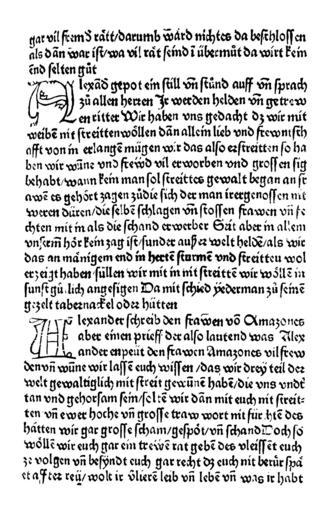 gar vil fremd rätt/darumb ward nichtes da beschlossen
als dañ war ist/wa vil rät seind i übermůt da wirt kein
end selten gůt
Alexãd gepot ein still vñ stůnd auff vñ sprach
zů allen herzen Ir werden helden vñ getrew
en ritter Wir haben vns gedacht dz wir mit
weiben nit streitten wöllen dañ allein lieb vnd freẅntsch
afft von in erlangen mügen wir das also erstreitten so ha
ben wir wüne vnd freẅd vil erworben vnd grossen sig
behabt/wann kein man sol streittes gewalt began an fr
awẽ es gehört zagen zů die sich der man
weren düren/die selben schlagen vñ stossen frawen vñ fe
chten mit in als die schand erwerber Sãt aber in allem
vnserm hör kein zag ist/sunder außer welt helde/als wir
das an mänigem end in hertẽ sturmẽ vnd streitten wol
erzeigt haben süllen wir mit in nit streittẽ wir wöllẽ in
sunst gůtlich angesigen Da mit schied yederman zů seinẽ
gezelt tabernackel oder hütten
Alexander schreib den frawen võ Amazones
aber einen prieff der also lautend was Alex
ander enpeüt den frawen Amazones vil frew
den vñ wüne wir lassen euch wissen/das wir drey teil der
welt gewaltiglich mit streit gewünẽ habẽ/die vns vndt
tan vnd gehorsam sein/soltẽ wir dañ mit euch nit streit-
ten vñ ewer hoche vñ grosse traw wort nit für
hätten wir gar grosse scham/gespöt/vñ schand Doch so
wöllẽ wir euch gar ein trewẽ rat gebẽ des vleissẽt euch
ze volgen vñ befyndt euch gar recht dz euch nit berür spä
et affter reü/wolt ir vlierẽ leib vñ lebẽ vñ was ir habt